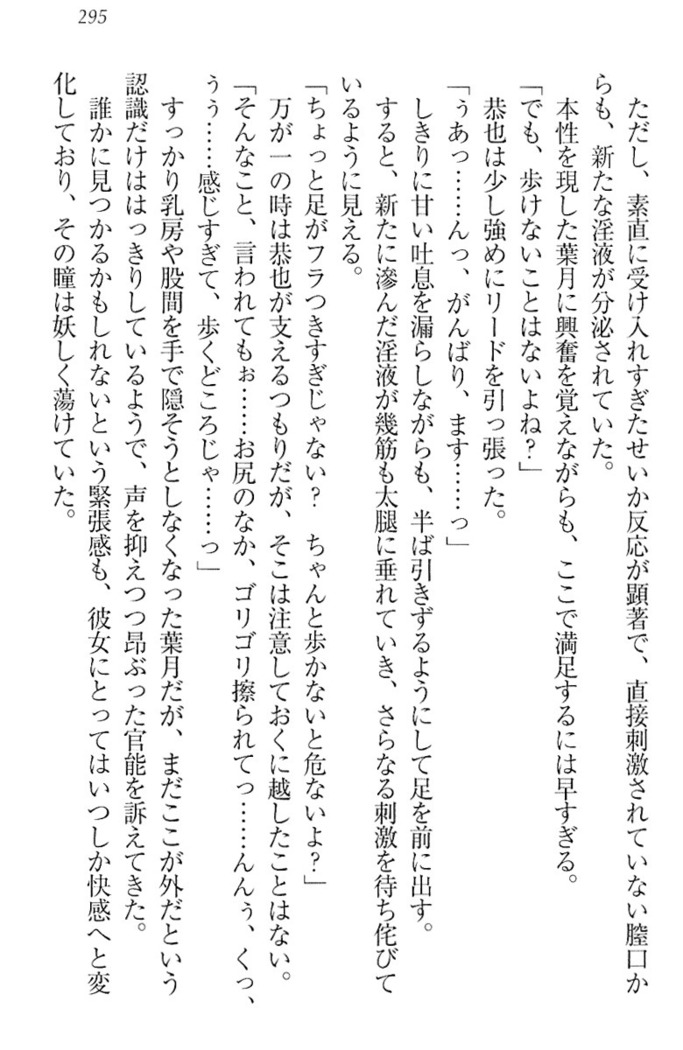 295
ただし、素直に受け入れすぎたせいか反応が顕著で、直接刺激されていない膣口か
らも、新たな淫液が分泌されていた。
本性を現した葉月に興奮を覚えながらも、ここで満足するには早すぎる。
「でも、歩けないことはないよね？」
恭也は少し強めにリードを引っ張った。
「ぅあっ……んっ、がんばり、ます……っ」
しきりに甘い吐息を漏らしながらも、半ば引きずるようにして足を前に出す。
すると、新たに滲んだ淫液が幾筋も太腿に垂れていき、さらなる刺激を待ち侘びて
いるように見える。
「ちょっと足がフラつきすぎじゃない？　ちゃんと歩かないと危ないよ？」
万が一の時は恭也が支えるつもりだが、そこは注意しておくに越したことはない。
「そんなこと、言われてもぉ……お尻のなか、ゴリゴリ擦られてっ……んんぅ、くっ、
うぅ……感じすぎて、歩くどころじゃ……っ」
すっかり乳房や股間を手で隠そうとしなくなった葉月だが、まだここが外だという
認識だけははっきりしているようで、声を抑えつつ昂ぶった官能を訴えてきた。
誰かに見つかるかもしれないという緊張感も、彼女にとってはいつしか快感へと変
化しており、その瞳は妖しく蕩けていた。